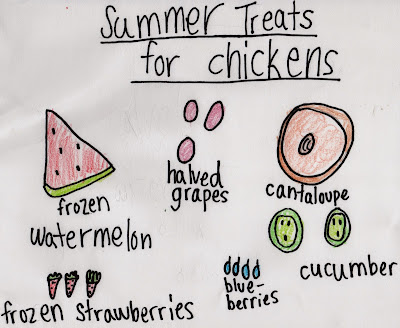 Summer Treats
for chickens
frozen
watermelon
halved
grapes
cantaloupe
frozen strawberries
blue-
berries
cucumber